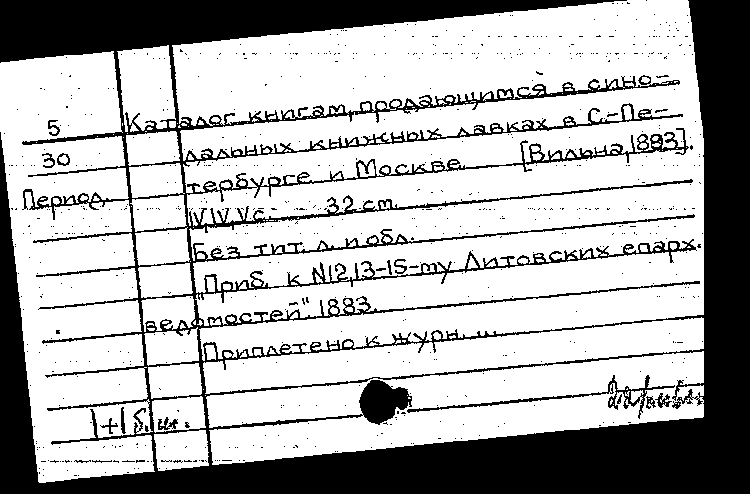 5
30
Период.
Каталог книгам, продающимся в сино-
дальных книжных лавках в С.-Пе-
тербурге и Москве [Вильна, 1883].
IV, IV, V с. - 32 cm.
Без тит. л. и обл.
"Приб. к N12, 13-15-ту Литовских епарх.
ведомостей". 1883.
Приплетено к журн. ...
1+1 б.ш.